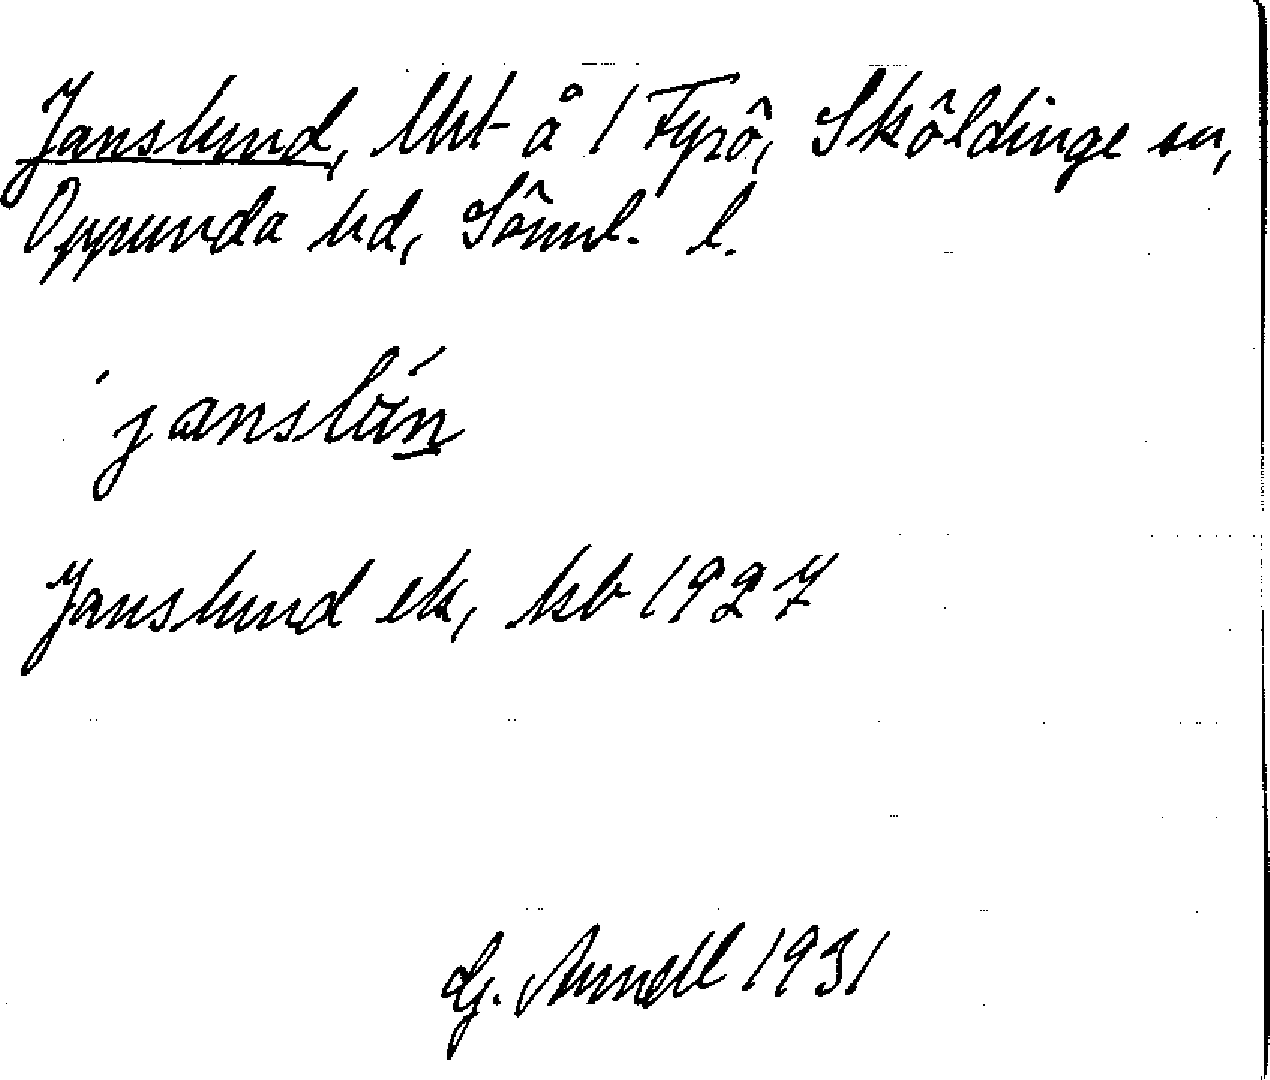 Janslund, lht å 1 Fyrö, Sköldinge sn,
Oppunda hd, Söml. l.
´janslún
Janslund ek, hsb 1927
G. Arnell 1931